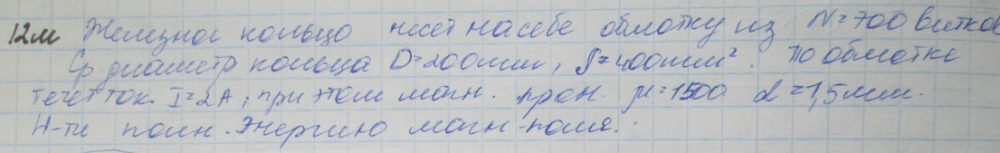 12м Железное кольцо несёт на себе обмотку из N=700 витков
Ср диаметр кольца D=200mm, S=400mm². По обмотке
течет ток. I=2A, при этом магн. прон. μ=1500 d=1,5мм.
Н-ти полн. энергию магн-поля.